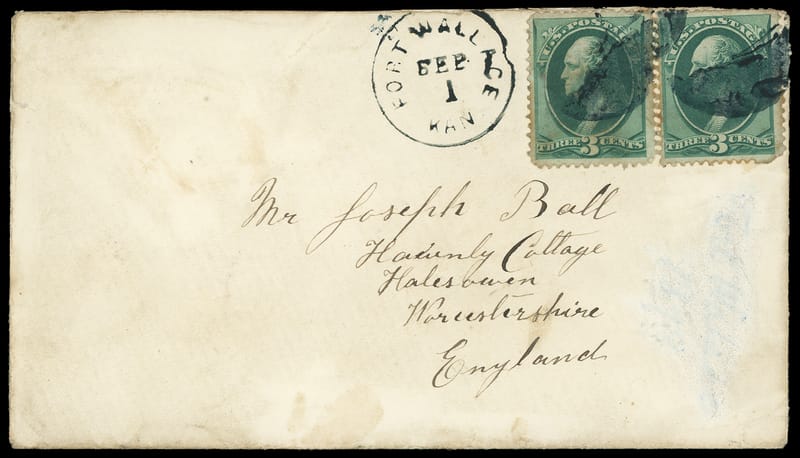 FORT WALLACE
FEB
1
KAN.
U.S. POSTAGE
THREE 3 CENTS
U.S. POSTAGE
THREE 3 CENTS
Mr Joseph Ball
Cottage
Halesowen
Worcestershire
England